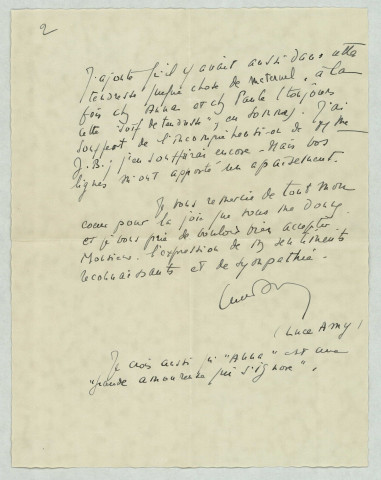 2
J'ajoute qu'il y avait aussi dans cette
tendresse quelque chose de maternel, à la
fois chez Anna et chez Paule (toujours
cette "soif de tendresse", en somme). J'ai
souffert de l'incompréhension de M me
J.B.; j'en souffrirai encore. Mais vos
lignes m'ont apporté un apaisement.
Je vous remercie de tout mon
coeur pour la joie que vous me donnez
et je vous prie de vouloir bien accepter,
Monsieur, l'expression de mes sentiments
reconnaissants et de sympathie.
(Luce Amy)
Je crois aussi qu'"Anna" est une
"grande amoureuse qui s'ignore".